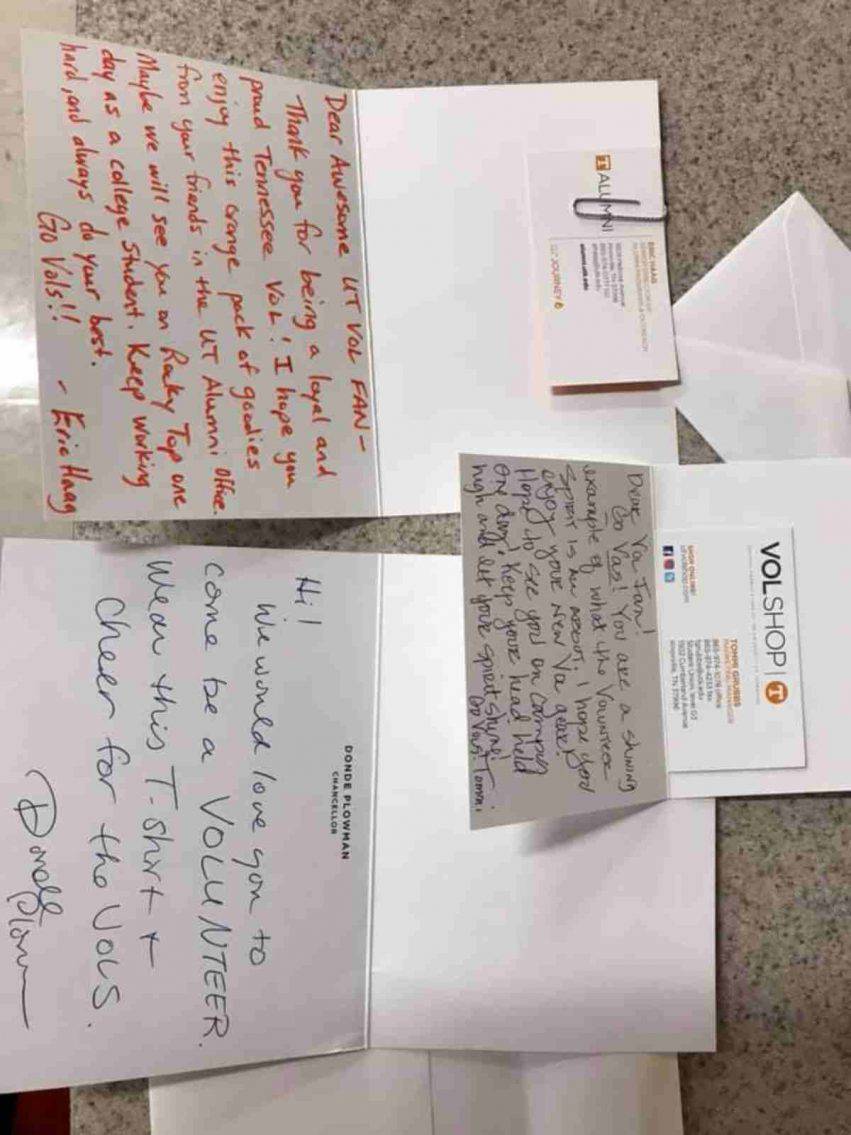 Dear Awesome UT VOL FAN -
Thank you for being a loyal and
proud Tennessee Vol! I hope you
enjoy this orange pack of goodies
from your friends in the UT Alumni Office.
Maybe we will see you on Rocky Top one
day as a college student. Keep working
hard, and always do your best.
Go Vols!!
- Eric Haag
T ALUMNI
ERIC HAAG
alumni.utk.edu
JOURNEY
Dear Vol Fan!
Go Vols! You are a shining
example of what the Volunteer
Spirit is all about. I hope you
enjoy your new Vol gear!
Hope to see you on campus
one day! Keep your head held
high and let your spirit shine!
Go Vols! Tommi
VOLSHOP T
TOMMI GRUBBS
865-974-1079 office
865-974-4233 fax
Student Union, level 02
1502 Cumberland Avenue
Knoxville, TN 37996
SHOP ONLINE!
UTVOLSHOP.COM
DONDE PLOWMAN
CHANCELLOR
Hi!
We would love you to
come be a VOLUNTEER.
Wear this T-shirt +
cheer for the Vols.
Donde Plowman